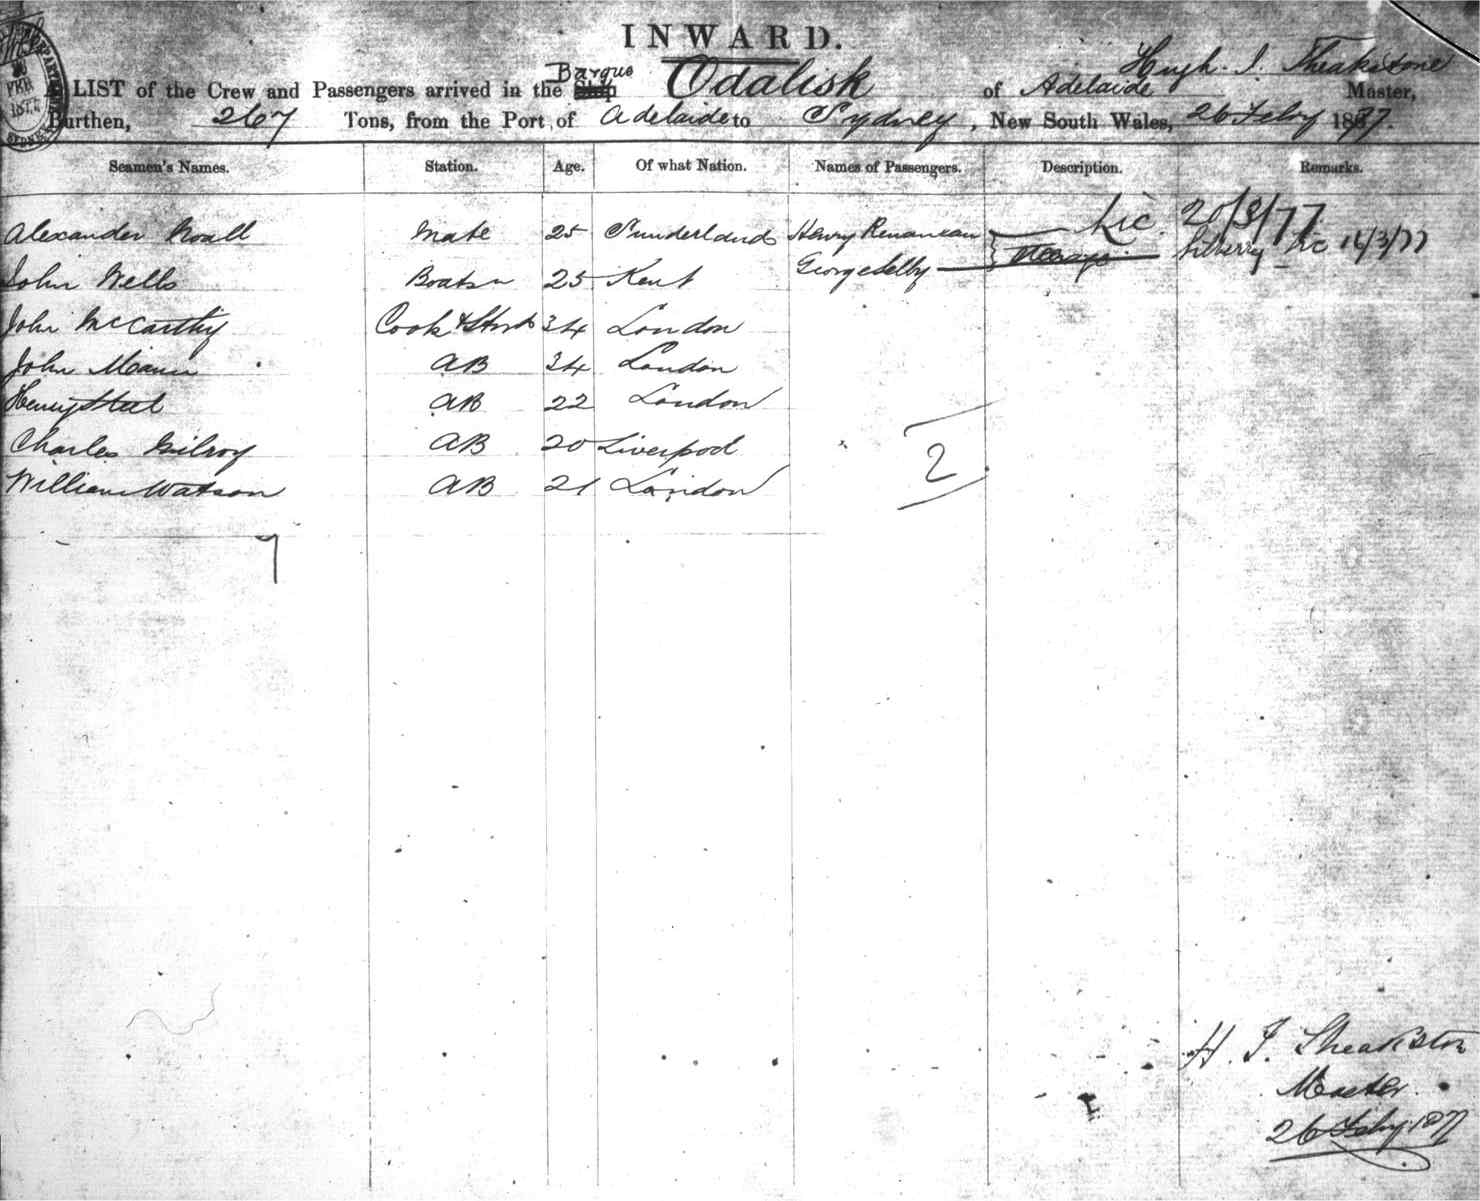 INWARD.
Hugh. J. Theakstone
LIST of the Crew and Passengers arrived in the Barque Ship Odalisk of Adelaide Master,
Burthen, 267 Tons, from the Port of Adelaide to Sydney, New South Wales, 26 Feby 1877.
Seamen's Names. Station. Age. Of what Nation. Names of Passengers. Description. Remarks.
Lic. 20/3/77
Alexander Mate 25 Sunderland Henry
George Selby Steerage Lic 14/3/77
John Wells Boatsn 25 Kent
John McCarthy Cook & Stwd 34 London
John AB 34 London
Henry Steel AB 22 London
Charles Gilroy AB 20 Liverpool
2
William Watson AB 21 London
7
H. J. Theakston
Master
26 Feby 1877